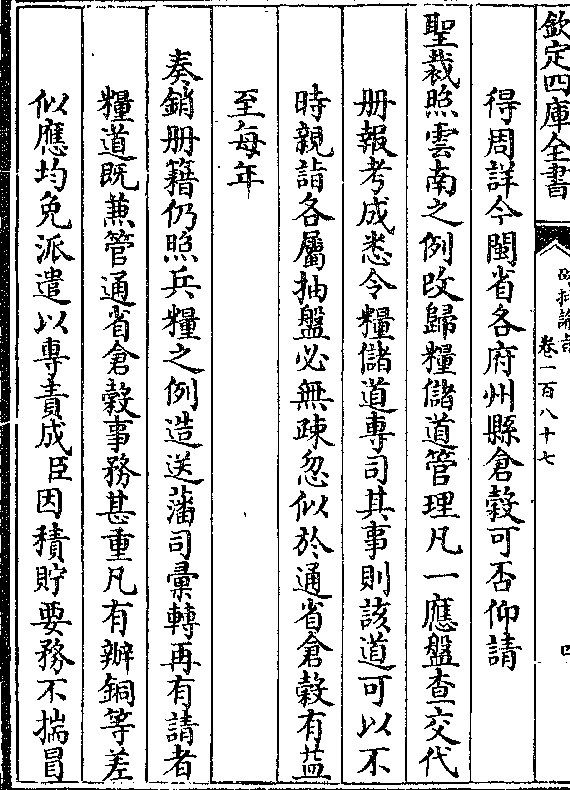 欽定四庫全書
卷一百八十七
得周詳今閩省各府州縣倉穀可否仰請
聖裁照雲南之例改歸糧儲道管理凡一應盤查交代
册報考成悉令糧儲道專司其事則該道可以不
時親詣各屬抽盤必無疎忽似於通省倉穀有益
至每年
奏銷册籍仍照兵糧之例造送藩司彚轉再有請者
糧道既兼管通省倉穀事務甚重凡有辦銅等差
似應均免派遣以專責成臣因積貯要務不揣冒